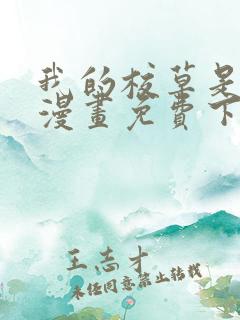 我的校草是
漫畫免費下
王志才
未经同意禁止转载